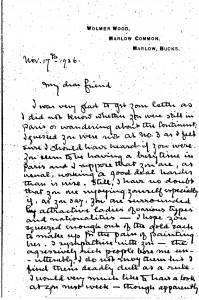 WOLMER WOOD,
MARLOW COMMON,
MARLOW, BUCKS.
Nov. 17th 1926.
My dear friend
I was very glad to get your letter as
I did not know whether you were still in
Paris or wandering about the Continent,
I guessed you were not at No 3 as I felt
sure I should have heard if you were.
You seem to be having a busy time in
Paris and I suppose that you are, as
usual, working a good deal harder
than is wise. Still, I have no doubt
that you are enjoying yourself especially
if, as you say, you are surrounded
by attractive ladies of various types
and nationalities — I hope you
squeezed enough out of the gold sack
to make up for the pain of
her. I sympathise with you — the
aggressively rich people bore me un-
utterably, I do not envy them but I
find them deadly dull as a rule.
I would very much like to have a look
at you next week — though apparently